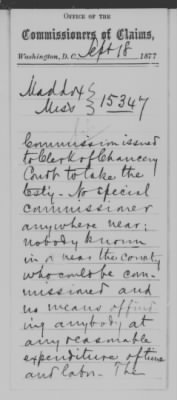 OFFICE OF THE
Commissioners of Claims,
Washington, D. C., Sept 18 1877
Maddox } 15347
Miss }
Commission issued
to Clerk of Chancery
Court to take the
testy - No special
commissioner
anywhere near;
nobody known
in or near the county
who could be com-
missioned and
no means of find
ing anybody at
any reasonable
expenditure of time
and labor. The